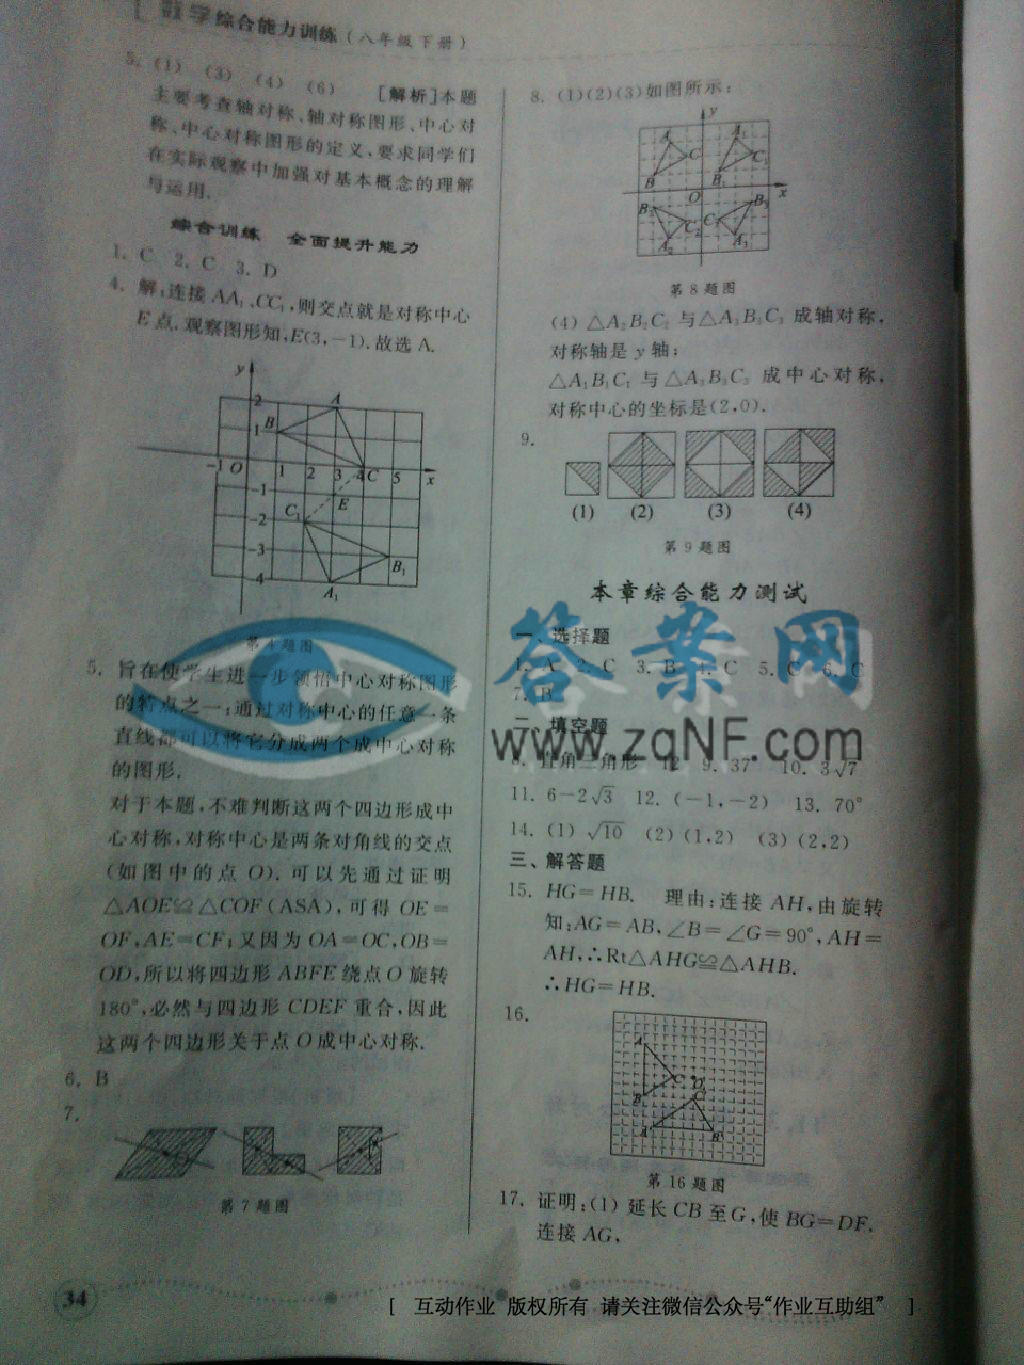 数学综合能力训练(八年级下册)
5. (1) (3) (4) (6) [解析]本题
主要考查轴对称、轴对称图形、中心对
称、中心对称图形的定义,要求同学们
在实际观察中加强对基本概念的理解
与运用.
综合训练 全面提升能力
1. C 2. C 3. D
4. 解:连接 AA₁、CC₁,则交点就是对称中心
E点,观察图形知,E(3,-1).故选 A.
y
2
A
B
1
-1 O 1 2 3 4 C 5 x
-1
E
C₁
-2
-3
B₁
4
A₁
第4题图
5. 旨在使学生进一步领悟中心对称图形
的特点之一:通过对称中心的任意一条
直线都可以将它分成两个成中心对称
的图形.
对于本题,不难判断这两个四边形成中
心对称,对称中心是两条对角线的交点
(如图中的点O).可以先通过证明
△AOE≌△COF(ASA),可得OE=
OF,AE=CF;又因为OA=OC,OB=
OD,所以将四边形ABFE绕点O旋转
180°,必然与四边形CDEF重合,因此
这两个四边形关于点O成中心对称.
6. B
7.
第7题图
34
8. (1)(2)(3)如图所示:
y
A
C
B
B₁
O
x
B₂
C₂
A₂
A₃
第8题图
(4) △A₂B₂C₂与△A₃B₃C₃成轴对称,
对称轴是y轴;
△A₁B₁C₁与△A₃B₃C₃成中心对称,
对称中心的坐标是(2,0).
9.
(1) (2) (3) (4)
第9题图
本章综合能力测试
一、选择题
1. A 2. C 3. B 4. C 5. C 6. C
7. B
二、填空题
8. 直角三角形 12 9. 37° 10. 3√7
11. 6-2√3 12. (-1,-2) 13. 70°
14. (1) √10 (2) (1,2) (3) (2,2)
三、解答题
15. HG=HB. 理由:连接AH,由旋转
知:AG=AB,∠B=∠G=90°,AH=
AH,∴Rt△AHG≌△AHB.
∴HG=HB.
16.
A
C
B
第16题图
17. 证明:(1) 延长CB至G,使BG=DF,
连接AG,
答案网
www.zqNF.com
[ 互动作业 版权所有 请关注微信公众号“作业互助组” ]